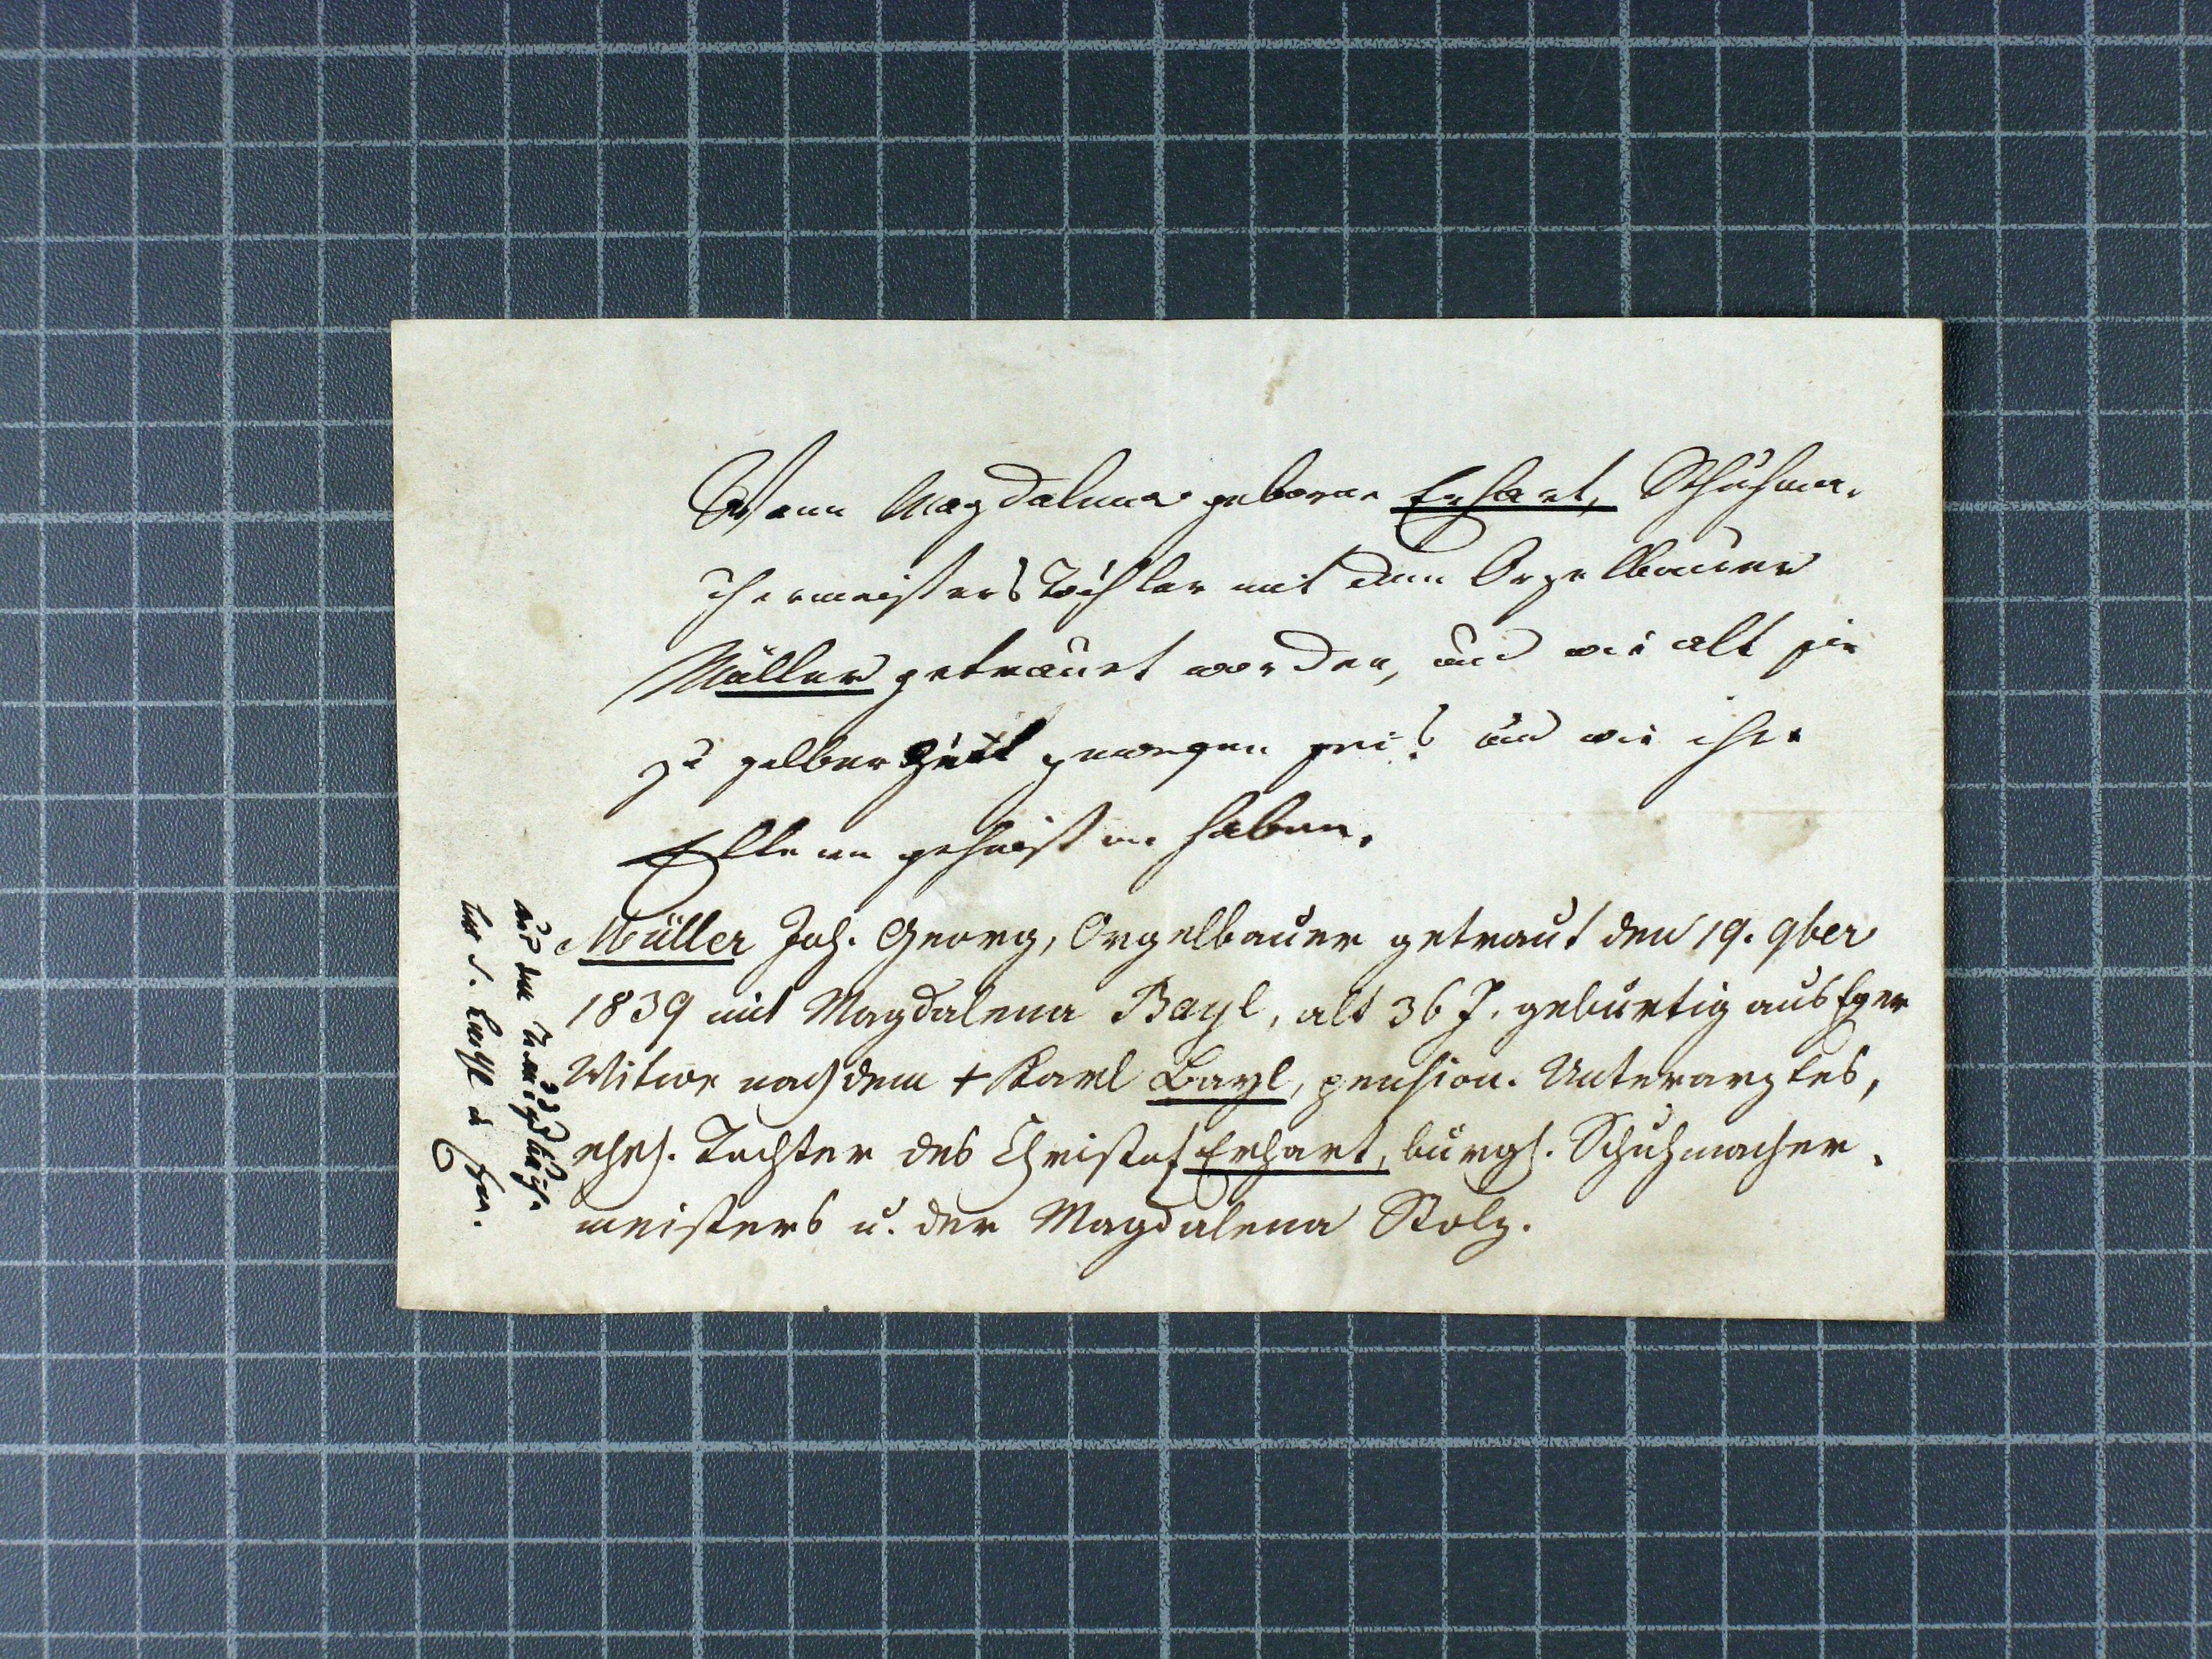 Wann Magdalena geborne Erhart, Schuhma-
chermeisters Tochter mit dem Orgelbauer
Müller getraut worden, und wie alt sie
zu selber Zeit gewesen sei? und wie ihre
Eltern geheißen haben.
Müller Joh. Georg, Orgelbauer getraut den 19. 9ber
1839 mit Magdalena Bayl, alt 36 J. gebürtig aus Eger
Witwe nach dem + Karl Bayl, pension. Unterarztes,
ehel. Tochter des Christof Erhart, bürgl. Schuhmacher-
meisters u. der Magdalena Stolz.
aus dem